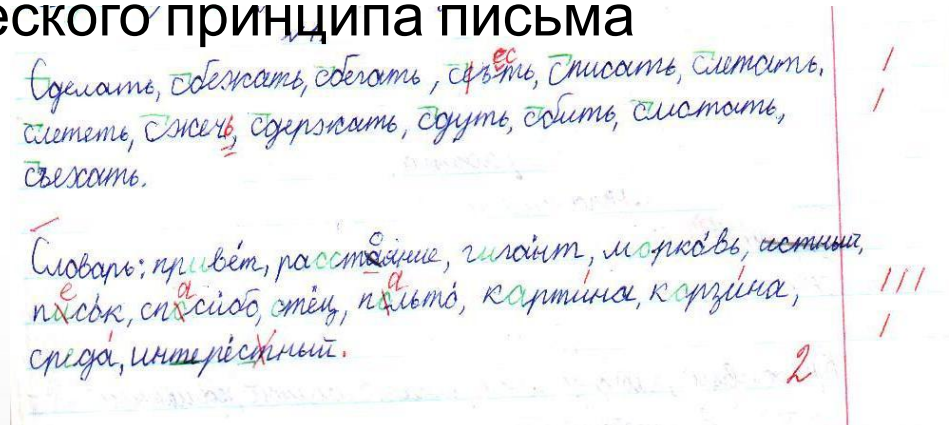 еского принципа письма
Сделать, сбежать, сбегать, съесть, списать, слетать.
слететь, сжечь, сдержать, сдуть, сбить, смотать,
съехать.
Словарь: приве́т, расстояние, гига́нт, морко́вь, истный,
песо́к, спаси́бо, оте́ц, пальто́, карти́на, корзи́на,
среда́, интере́стный.
2